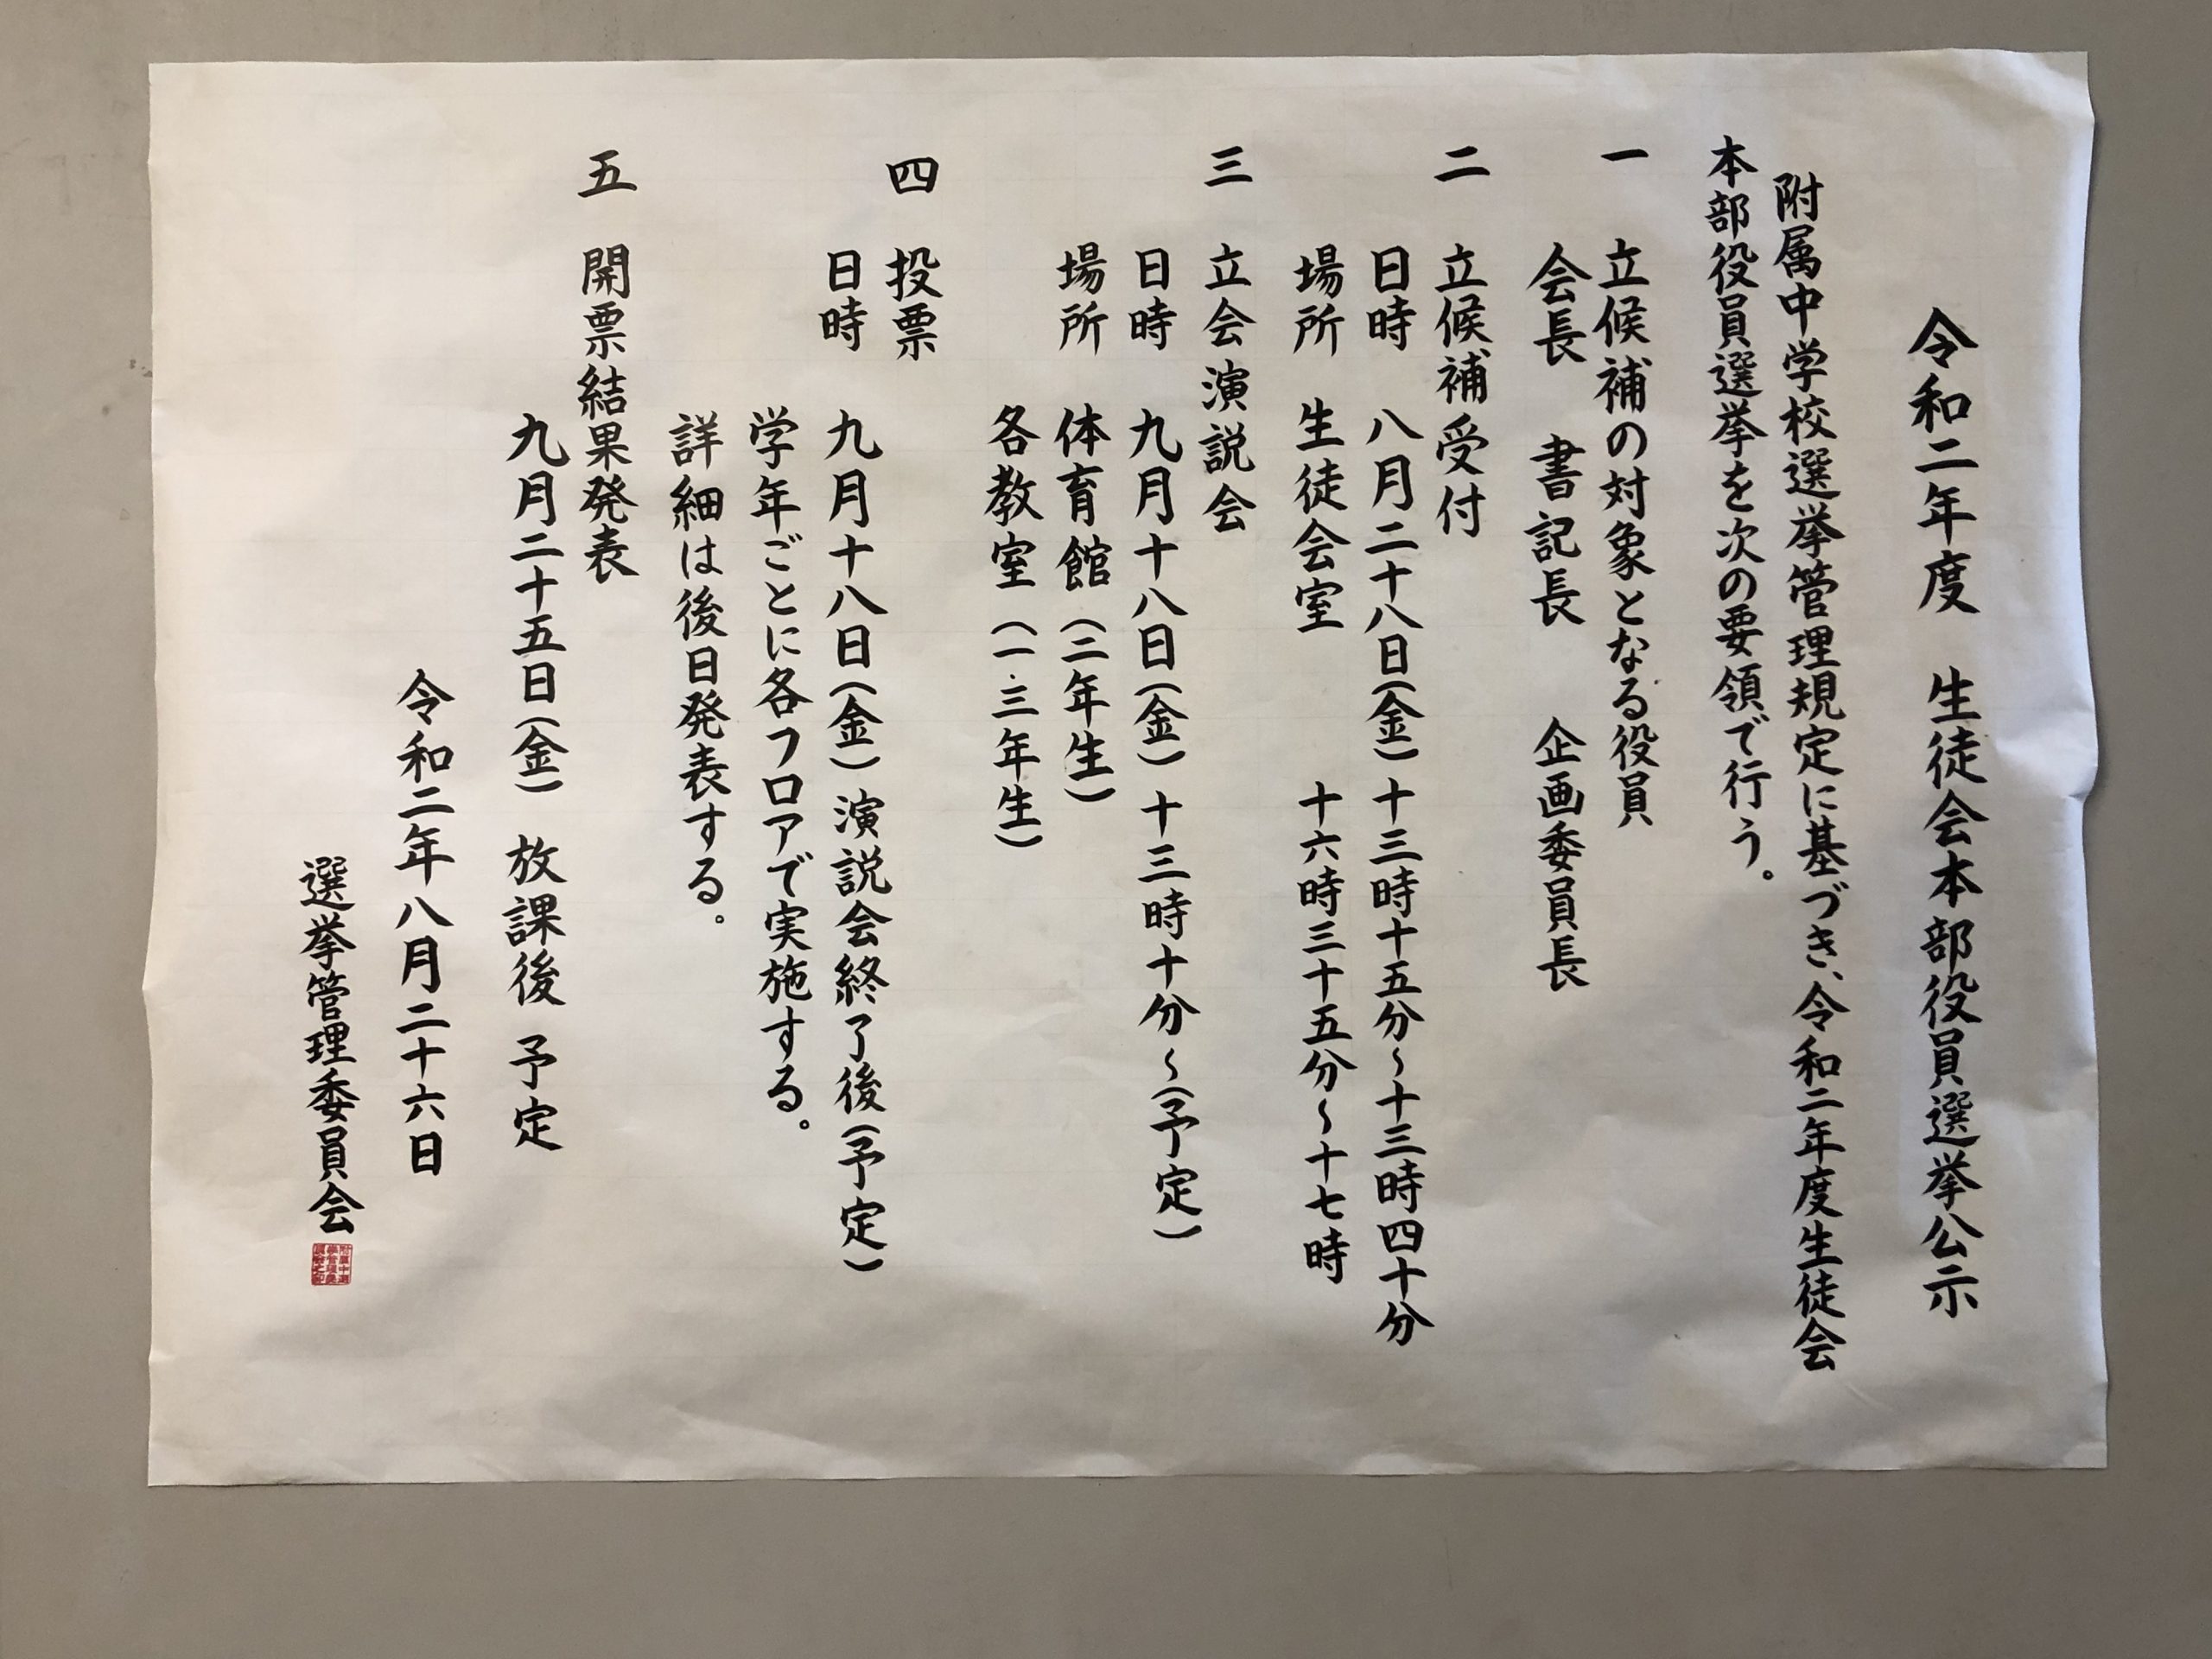 令和二年度　生徒会本部役員選挙公示
附属中学校選挙管理規定に基づき、令和二年度生徒会
本部役員選挙を次の要領で行う。
一　立候補の対象となる役員
会長　書記長　企画委員長
二　立候補受付
日時　八月二十八日（金）十三時十五分～十三時四十分
場所　生徒会室　十六時三十五分～十七時
三　立会演説会
日時　九月十八日（金）十三時十分～（予定）
場所　体育館（二年生）
各教室（一・三年生）
四　投票
日時　九月十八日（金）演説会終了後（予定）
学年ごとに各フロアで実施する。
詳細は後日発表する。
五　開票結果発表
九月二十五日（金）　放課後　予定
令和二年八月二十六日
選挙管理委員会